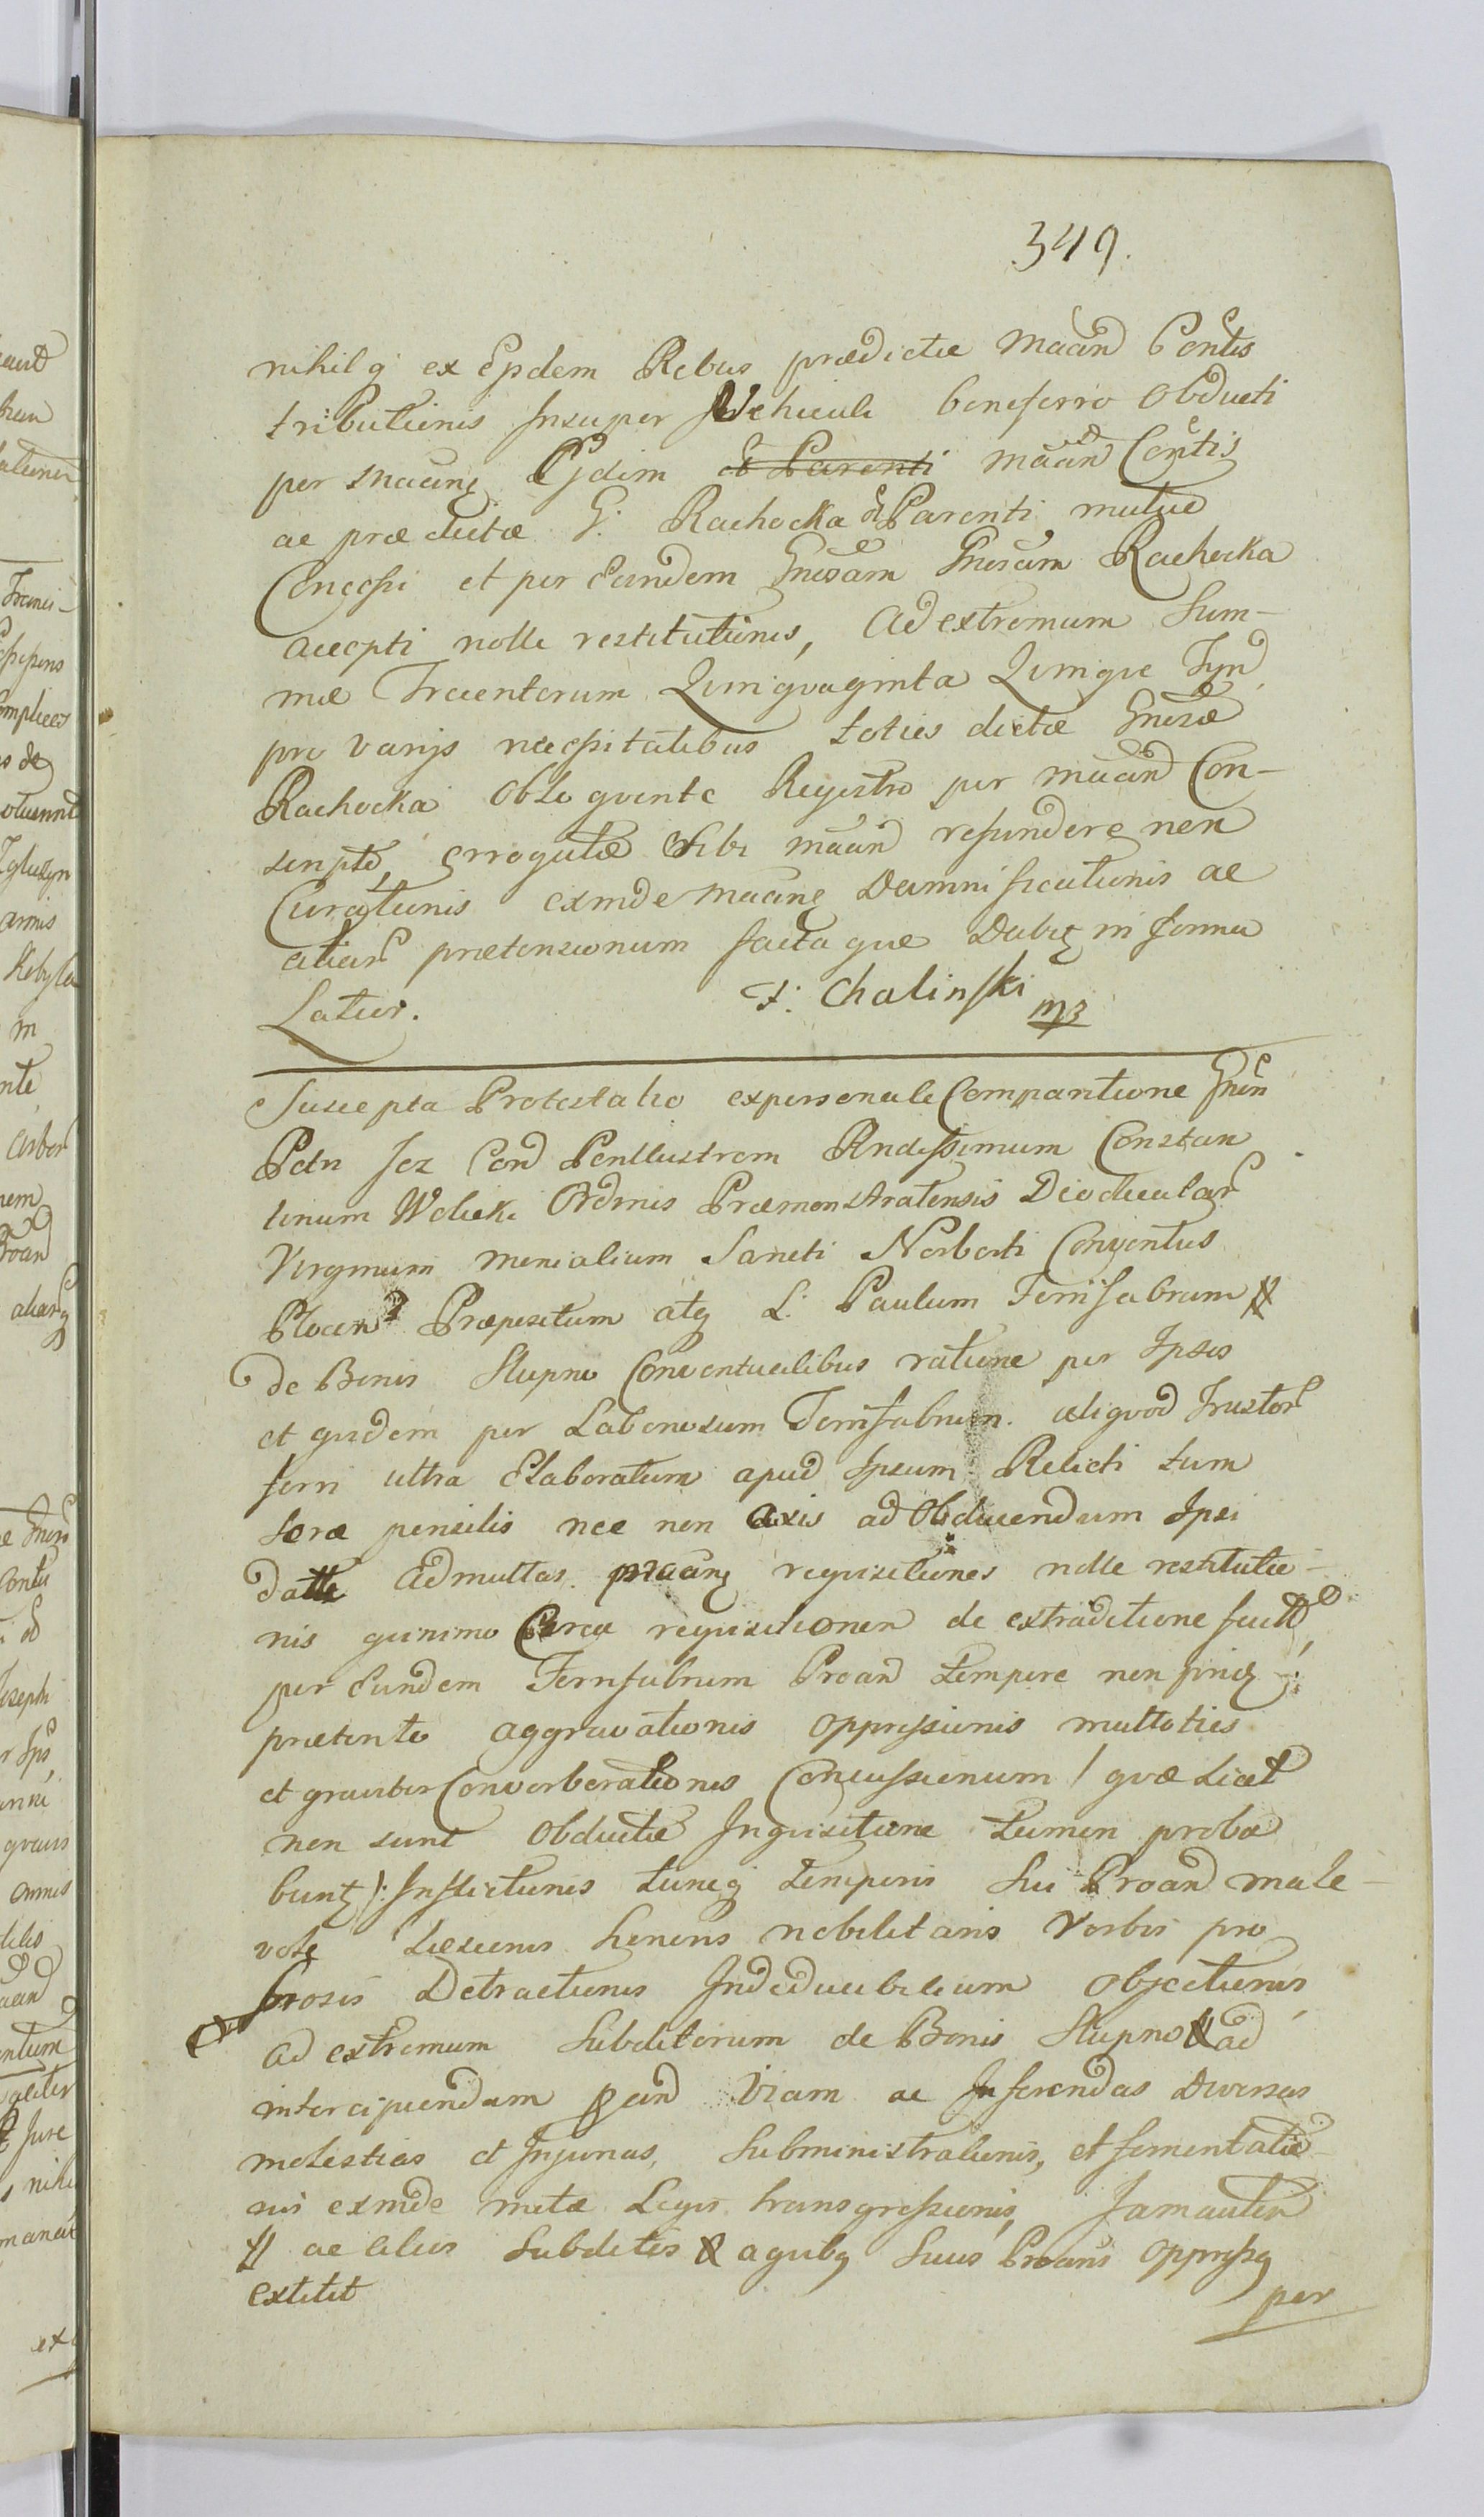 349.
nihilq ex Ejsdem Rebus prædictæ Maãnd Contis
tributionis Insuper Vehiculi beneferro Obducti
per Maãnĕ Ejdem et Parenti maãnd Contis
ac prædictæ G: Rachocka & Parenti mutuo
Concessi et per Eandem Gnesam Gnesam Rachocka
accepti nolle restitutionis, Ad extremum Sum-
mæ Trecentorum Quinquaginta Quinque Tyn
pro varijs necessitatibus toties dictæ Gneræ
Rachocka Obloquente Registro per maãnd Con-
scripto, Errogatæ Sibi maãnd refundere non
Curationis exinde maãnĕ Damnificationis ac
aliar prætensionum facta que Dabit in forma
Latior. F: Chalinski mp
Suscepta Protestatio ex personali Comparitione Gnen
Petri Jez Con Perillustrem Rndissimum Constan
tinum Wolicki Ordinis Præmonstratensis Diodicular
Virginum monialium Sancti Norberti Conventus
Plocen Præpositum atq L: Paulum Ferrifabrum
de Bonis Slupno Conventualibus ratione per Ipsos
et quidem per Laboriosum Ferrifabrum aliquod frustor
ferri ultra Elaboratum apud Ipsum Relicti tum
Seræ pensilis nec non axis ad Obducendum Ipsi
datti Ad multas maãnĕ requisitiones nolle restitutio-
nis quinimo Circa requisitionem de extraditione fact
per Eundem Ferrifabrum Proand tempore non pridĕ
prætento aggravationis oppressionis multoties
et graviter Converberationis Concussionum / quæ Licet
non sunt Obductæ Inquisitione Tamen proba
bunt): Inflictionis tuncq temporis Sui Proand male-
vole Læsionis honoris nobilitaris Verbis pro
brosis Detractionis Indeducibilium Objectionis
ad extremum Subditorum de Bonis Slupno ad
intercipiendam pand Viam ac Inferendas Diversas
molestias et Injurias, Subministrationis, et fomentatio-
nis exinde metæ Legis transgressionis, Jam autem
ac aliis Subditis aquibq Suus Proans oppressq
extitit
per